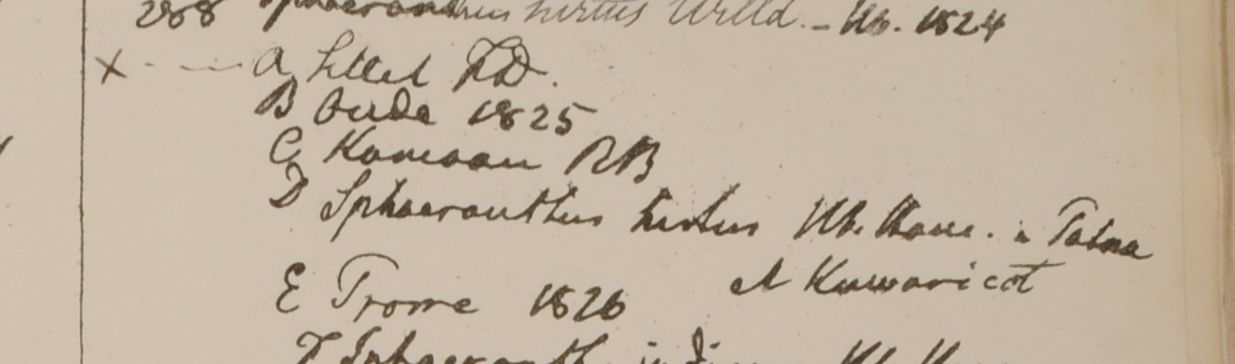 288 Sphaeranthus hirtus Willd. – Hb. 1824
x - - — a, Sillet FD.
B Oude 1825
C, Kamaon RB
D Sphaeranthus hirtus Hb. Ham. a Patna
et Kuwaricot
E Prome 1826
F Sphaeranth. indicus Hb. Ham